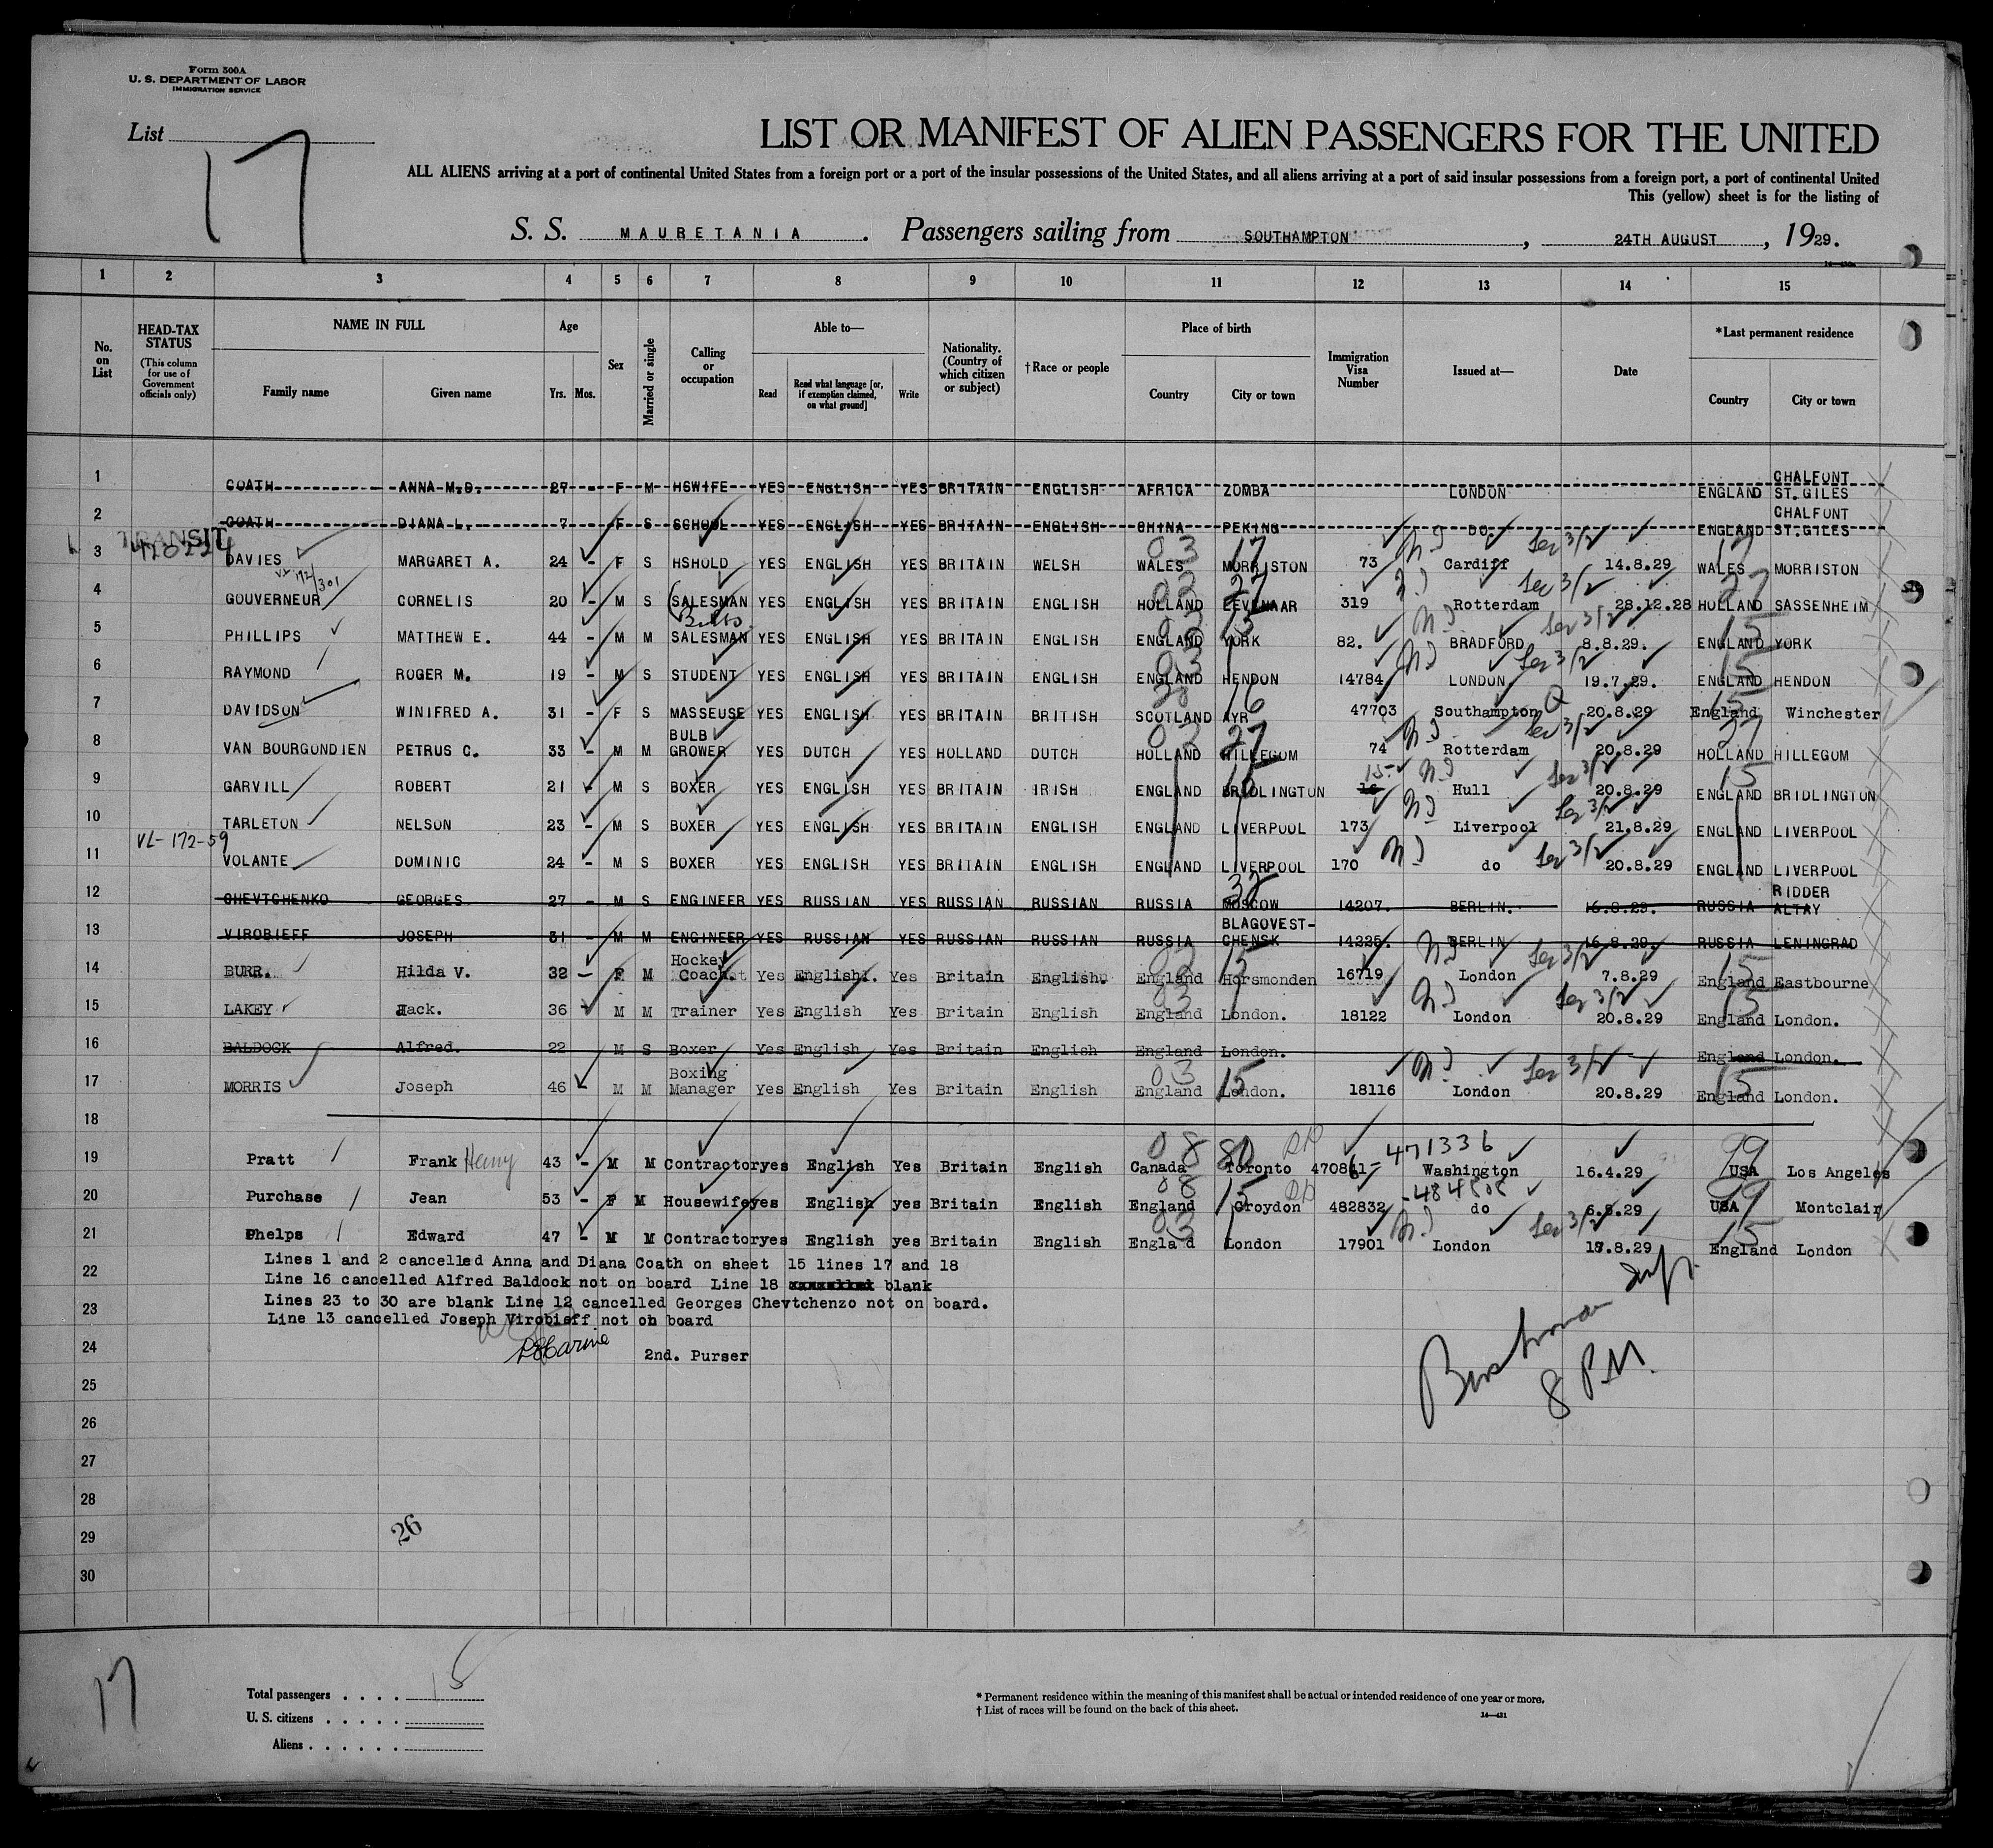 Form 500A
U. S. DEPARTMENT OF LABOR
IMMIGRATION SERVICE
List 17
LIST OR MANIFEST OF ALIEN PASSENGERS FOR THE UNITED
ALL ALIENS arriving at a port of continental United States from a foreign port or a port of the insular possessions of the United States, and all aliens arriving at a port of said insular possessions from a foreign port, a port of continental United
This (yellow) sheet is for the listing of
S. S. MAURETANIA. Passengers sailing from SOUTHAMPTON, 24TH AUGUST, 1929.
1 2 3 4 5 6 7 8 9 10 11 12 13 14 15
No. on List
HEAD-TAX STATUS (This column for use of Government officials only)
NAME IN FULL Family name Given name
Age Yrs. Mos.
Sex
Married or single
Calling or occupation
Able to— Read Read what language [or, if exemption claimed, on what ground] Write
Nationality. (Country of which citizen or subject)
†Race or people
Place of birth Country City or town
Immigration Visa Number
Issued at—
Date
*Last permanent residence Country City or town
1 COATH ANNA M.D. 27 - F M HSWIFE YES ENGLISH YES BRITAIN ENGLISH AFRICA ZOMBA LONDON ENGLAND CHALFONT ST.GILES
2 COATH DIANA L. 7 F S SCHOOL YES ENGLISH YES BRITAIN ENGLISH CHINA PEKING DO. ENGLAND CHALFONT ST.GILES
TRANSIT
3 DAVIES MARGARET A. 24 - F S HSHOLD YES ENGLISH YES BRITAIN WELSH WALES MORRISTON 73 Cardiff 14.8.29 WALES MORRISTON
4 GOUVERNEUR CORNELIS 20 - M S SALESMAN YES ENGLISH YES BRITAIN ENGLISH HOLLAND 319 Rotterdam 28.12.28 HOLLAND SASSENHEIM
Bulbs
5 PHILLIPS MATTHEW E. 44 - M M SALESMAN YES ENGLISH YES BRITAIN ENGLISH ENGLAND YORK 82. BRADFORD 8.8.29. ENGLAND YORK
6 RAYMOND ROGER M. 19 - M S STUDENT YES ENGLISH YES BRITAIN ENGLISH ENGLAND HENDON 14784 LONDON 19.7.29. ENGLAND HENDON
7 DAVIDSON WINIFRED A. 31 - F S MASSEUSE YES ENGLISH YES BRITAIN BRITISH SCOTLAND AYR 47703 Southampton Q 20.8.29 England Winchester
8 VAN BOURGONDIEN PETRUS C. 33 - M M BULB GROWER YES DUTCH YES HOLLAND DUTCH HOLLAND HILLEGOM 74 Rotterdam 20.8.29 HOLLAND HILLEGOM
9 GARVILL ROBERT 21 - M S BOXER YES ENGLISH YES BRITAIN IRISH ENGLAND BRIDLINGTON 15 Hull 20.8.29 ENGLAND BRIDLINGTON
10 TARLETON NELSON 23 - M S BOXER YES ENGLISH YES BRITAIN ENGLISH ENGLAND LIVERPOOL 173 Liverpool 21.8.29 ENGLAND LIVERPOOL
VL-172-59
11 VOLANTE DOMINIC 24 - M S BOXER YES ENGLISH YES BRITAIN ENGLISH ENGLAND LIVERPOOL 170 do 20.8.29 ENGLAND LIVERPOOL
12 CHEVTCHENKO GEORGES 27 - M S ENGINEER YES RUSSIAN YES RUSSIAN RUSSIAN RUSSIA MOSCOW 14207. BERLIN. 16.8.29. RUSSIA RIDDER ALTAY
13 VIROBIEFF JOSEPH 31 - M M ENGINEER YES RUSSIAN YES RUSSIAN RUSSIAN RUSSIA BLAGOVEST-CHENSK 14225. BERLIN 16.8.29. RUSSIA LENINGRAD
14 BURR. Hilda V. 32 - F M Hockey Coach. Yes English. Yes Britain English. England Horsmonden 16719 London 7.8.29 England Eastbourne
15 LAKEY Jack. 36 M M Trainer Yes English Yes Britain English England London. 18122 London 20.8.29 England London.
16 BALDOCK Alfred. 22 M S Boxer Yes English Yes Britain English England London. England London.
17 MORRIS Joseph 46 M M Boxing Manager Yes English Yes Britain English England London. 18116 London 20.8.29 England London.
18
19 Pratt Frank Henry 43 - M M Contractor yes English Yes Britain English Canada Toronto 471336 Washington 16.4.29 USA Los Angeles
20 Purchase Jean 53 - F M Housewife yes English yes Britain English England Croydon 482832 do 6.8.29 USA Montclair
21 Phelps Edward 47 - M M Contractor yes English yes Britain English Engla d London 17901 London 8.29 England London
Lines 1 and 2 cancelled Anna and Diana Coath on sheet 15 lines 17 and 18
22 Line 16 cancelled Alfred Baldock not on board Line 18 blank
23 Lines 23 to 30 are blank Line 12 cancelled Georges Chevtchenzo not on board.
Line 13 cancelled Joseph Virobieff not on board
24 2nd. Purser
8 P.M.
25
26
27
28
29
26
30
17
Total passengers . . . . 15
U. S. citizens . . . . .
Aliens . . . . . .
* Permanent residence within the meaning of this manifest shall be actual or intended residence of one year or more.
† List of races will be found on the back of this sheet.
14—431